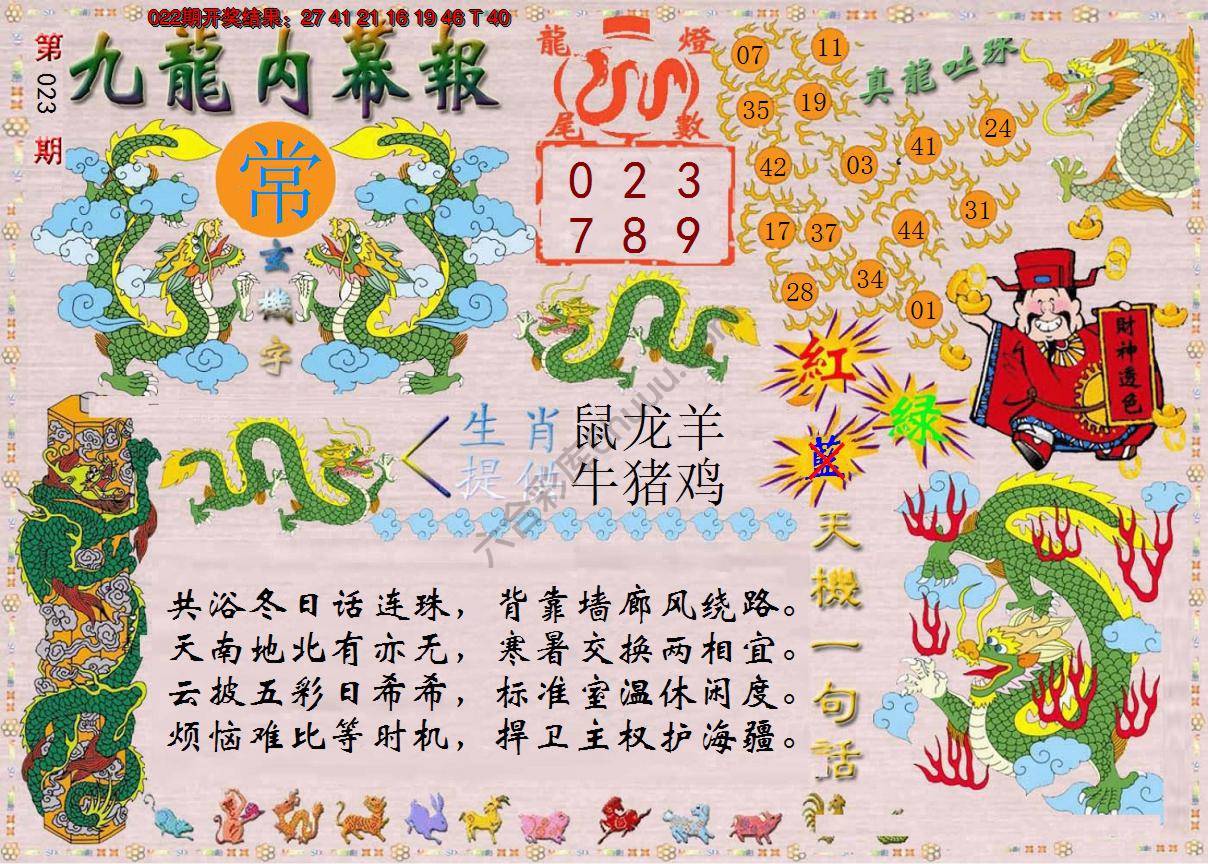 022期开奖结果：27 41 21 16 19 46 T 40
第023期
九龍内幕報
常
玄機字
龍燈尾數
0 2 3
7 8 9
真龍吐珠
07 11
35 19
42 03 41 24
17 37 44 31
28 34 01
財神透色
紅
綠
藍
生肖 鼠龙羊
提供 牛猪鸡
天機一句話
共浴冬日话连珠，背靠墙廊风绕路。
天南地北有亦无，寒暑交换两相宜。
云披五彩日希希，标准室温休闲度。
烦恼难比等时机，捍卫主权护海疆。